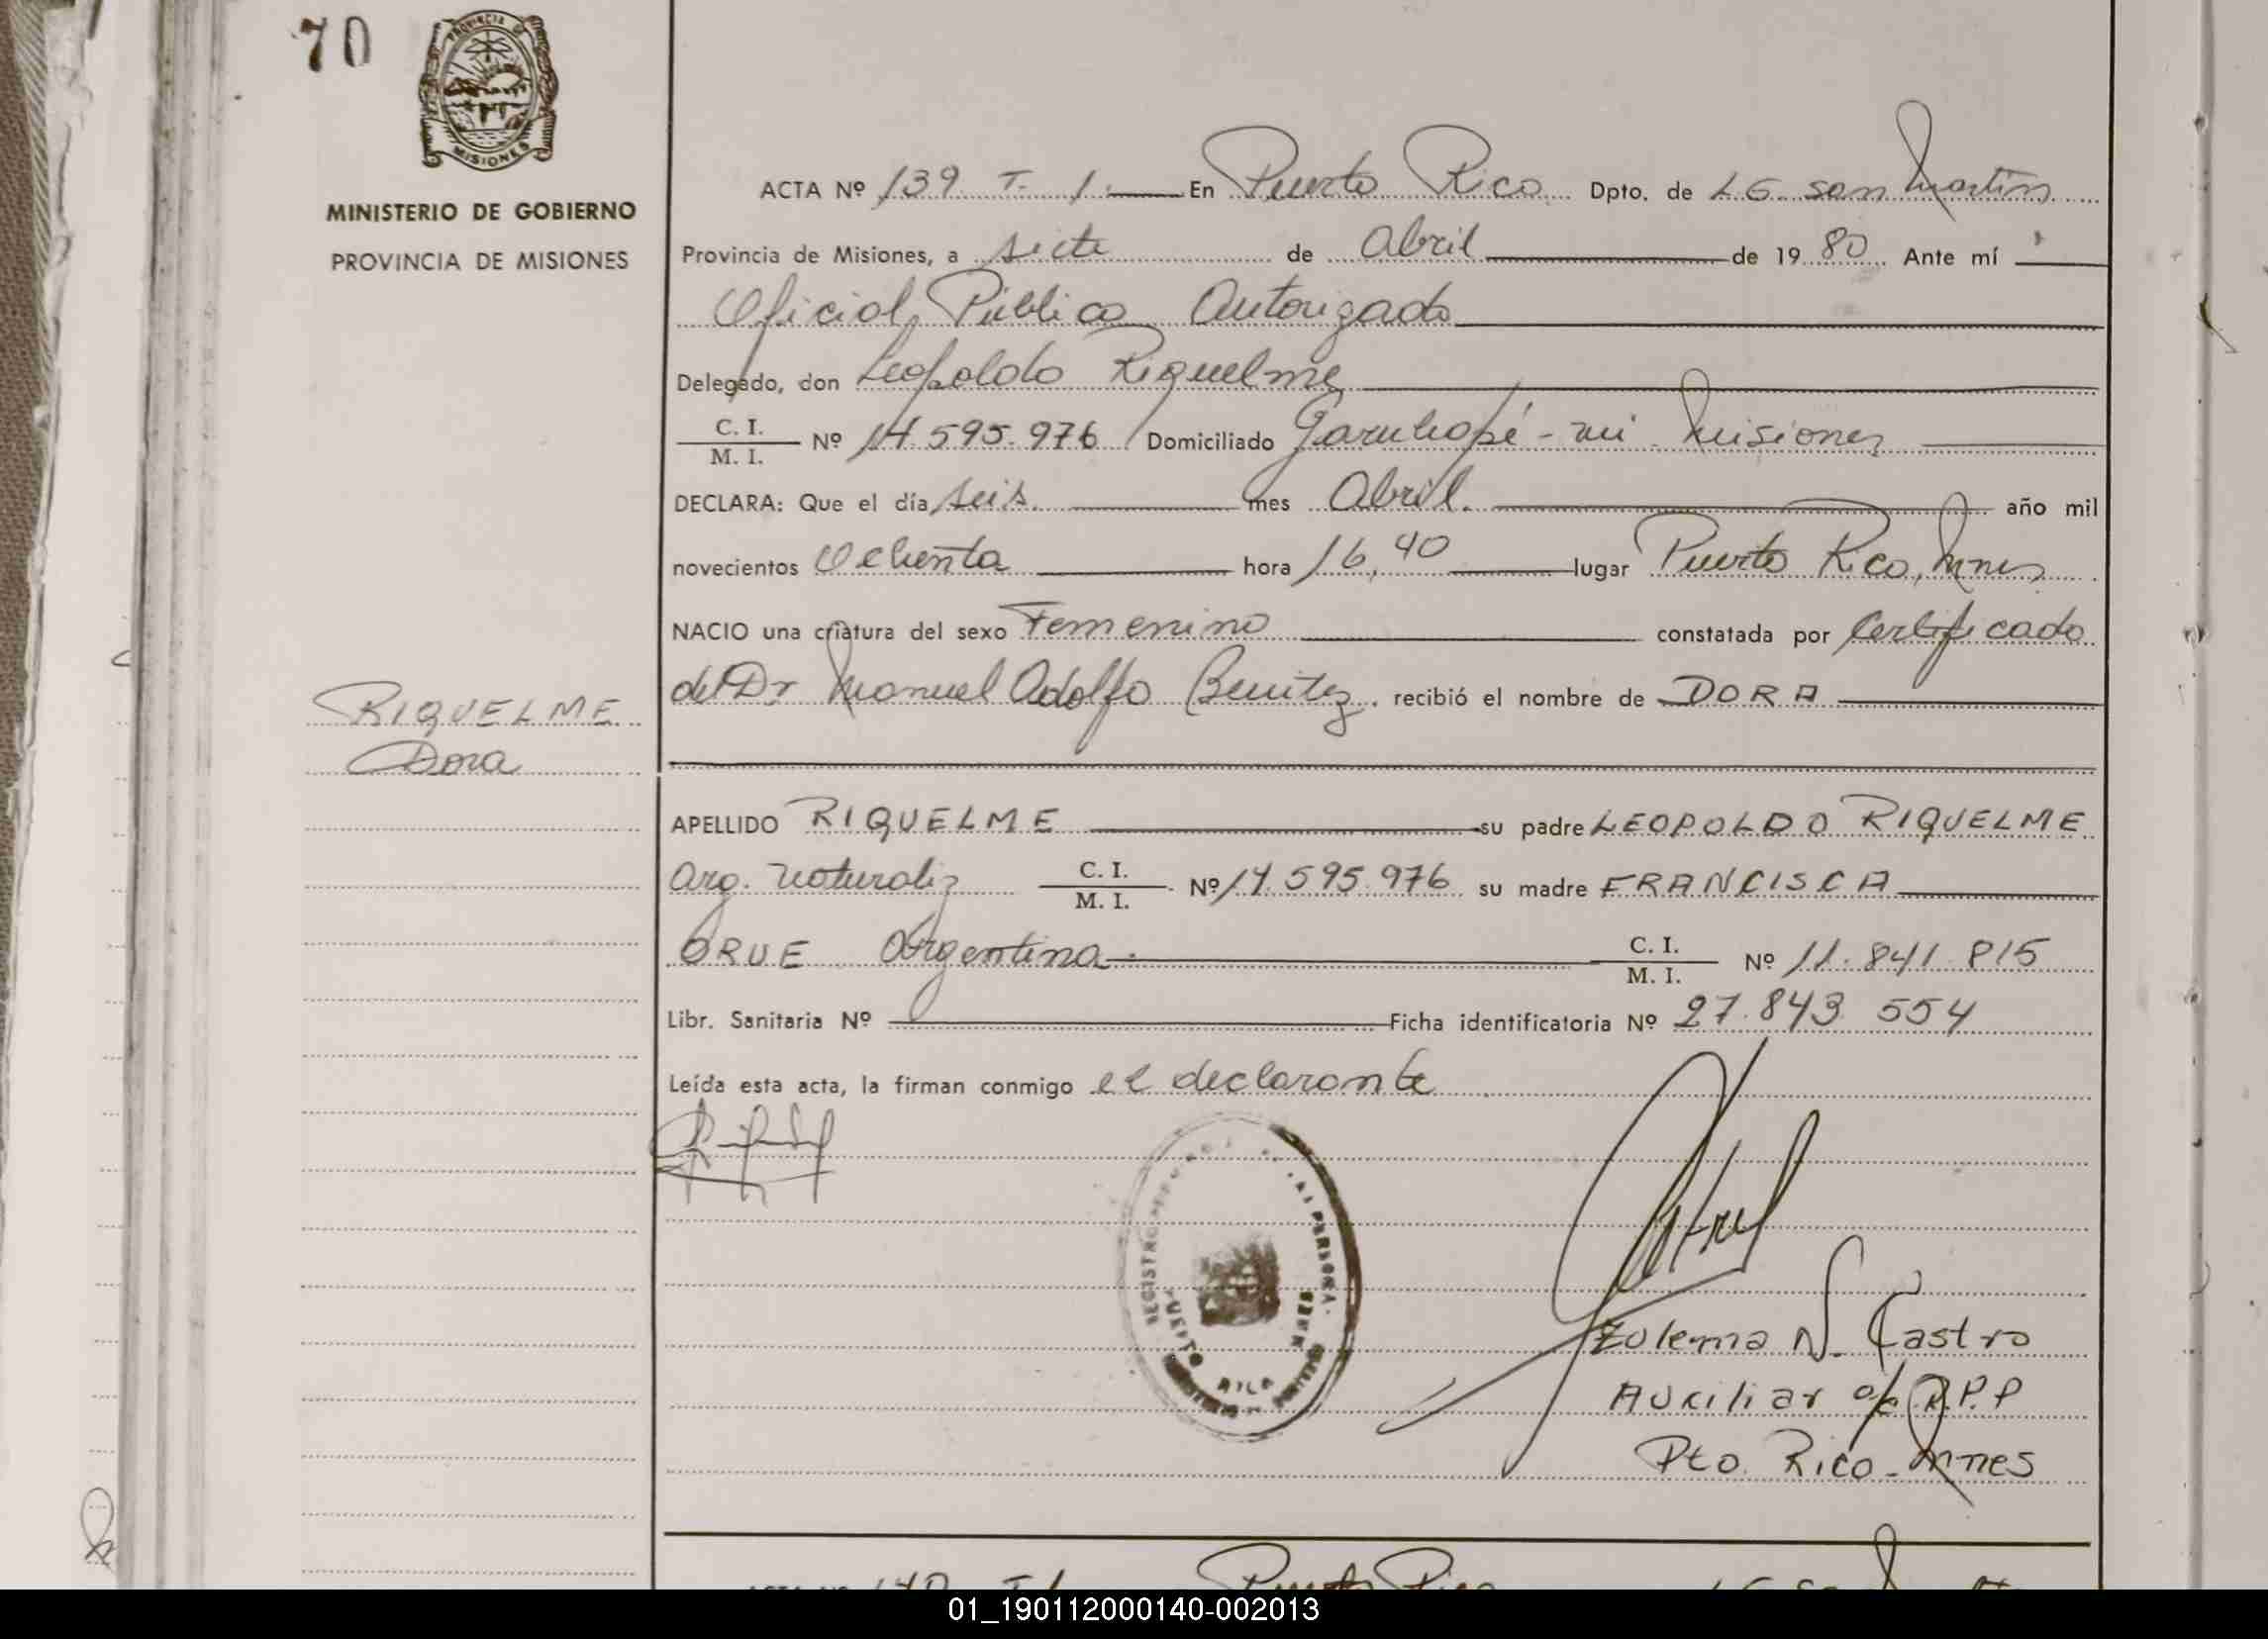 70
PROVINCIA DE
MISIONES
MINISTERIO DE GOBIERNO
PROVINCIA DE MISIONES
RIQUELME
Dora
ACTA Nº 139 T. 1. En Puerto Rico Dpto. de L G. San Martín
Provincia de Misiones, a siete de Abril de 1980 Ante mí
Oficial Público Autorizado
Delegado, don Leopoldo Riquelme
C. I.
M. I. Nº 14.595.976 Domiciliado Garuhapé - Misiones
DECLARA: Que el día seis. mes Abril. año mil
novecientos Ochenta hora 16,40 lugar Puerto Rico, Mnes
NACIO una criatura del sexo Femenino constatada por Certificado
del Dr Manuel Adolfo Benitez. recibió el nombre de DORA
APELLIDO RIQUELME su padre LEOPOLDO RIQUELME
Arg. Naturaliz C. I.
M. I. Nº 14.595.976 su madre FRANCISCA
ORUE Argentina. C. I.
M. I. Nº 11.841.815
Libr. Sanitaria Nº Ficha identificatoria Nº 27.843.554
Leída esta acta, la firman conmigo el declarante
REGISTRO
PUERTO RICO
Zulema N. Castro
Auxiliar o/c R.P.P
Pto. Rico - Mnes
01_190112000140-002013